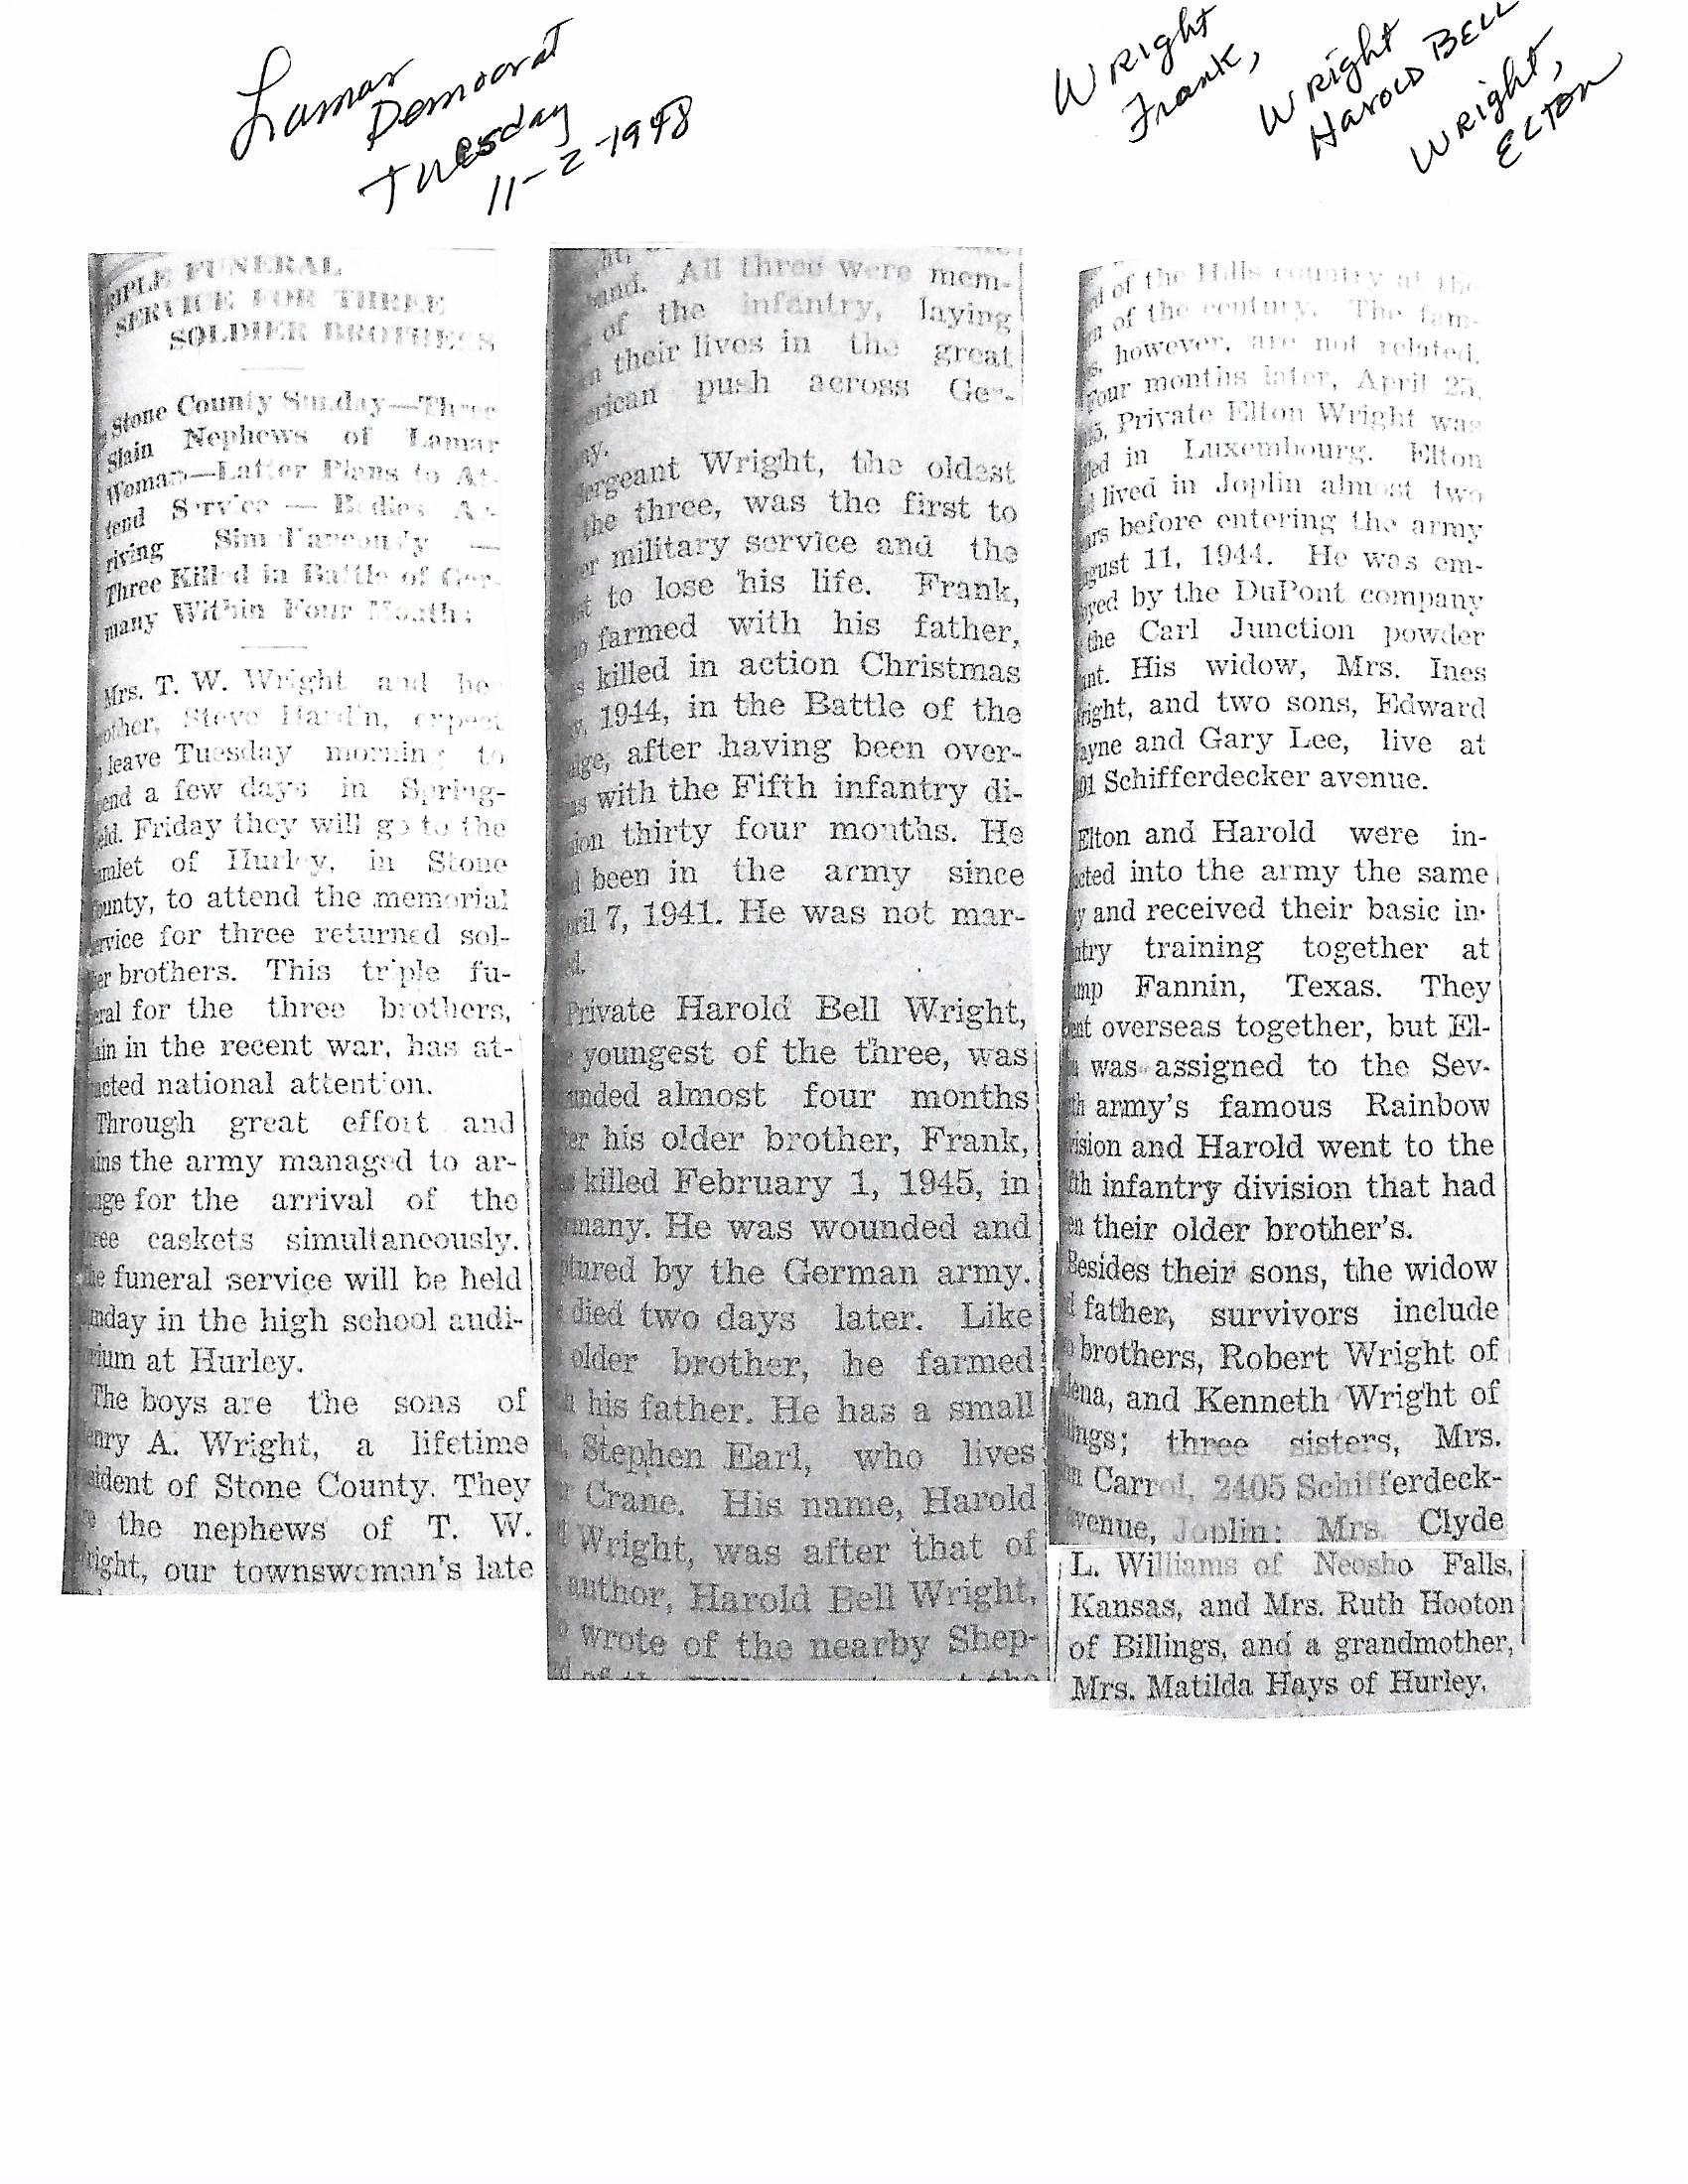 Lamar
Democrat
Tuesday
11-2-1948
Wright
Frank,
Wright
Harold Bell
Wright,
Elton
IPLE FUNERAL
SERVICE FOR THREE
SOLDIER BROTHERS
Stone County Sunday—Three
Slain Nephews of Lamar
Woman—Latter Plans to At-
tend Service — Bodies Ar-
riving Simultaneously —
Three Killed in Battle of Ger-
many Within Four Months
Mrs. T. W. Wright and he
other, Steve Hardin, expect
leave Tuesday morning to
end a few days in Spring-
eld. Friday they will go to the
amlet of Hurley, in Stone
ounty, to attend the memorial
ervice for three returned sol-
er brothers. This triple fu-
eral for the three brothers,
ain in the recent war, has at-
acted national attention.
Through great effort and
ins the army managed to ar-
nge for the arrival of the
ree caskets simultaneously.
he funeral service will be held
nday in the high school audi-
rium at Hurley.
The boys are the sons of
enry A. Wright, a lifetime
sident of Stone County. They
re the nephews of T. W.
right, our townswoman's late
band. All three were mem-
of the infantry, laying
n their lives in the great
erican push across Ger-
ny.
ergeant Wright, the oldest
the three, was the first to
er military service and the
st to lose his life. Frank,
o farmed with his father,
s killed in action Christmas
y, 1944, in the Battle of the
ulge, after having been over-
as with the Fifth infantry di-
sion thirty four months. He
d been in the army since
ril 7, 1941. He was not mar-
d.
Private Harold Bell Wright,
e youngest of the three, was
unded almost four months
ter his older brother, Frank,
s killed February 1, 1945, in
rmany. He was wounded and
ptured by the German army.
e died two days later. Like
older brother, he farmed
h his father. He has a small
n, Stephen Earl, who lives
r Crane. His name, Harold
ll Wright, was after that of
author, Harold Bell Wright,
o wrote of the nearby Shep-
d of the Hills country at the
rn of the century. The fam-
s, however, are not related.
Four months later, April 25,
45, Private Elton Wright was
lled in Luxembourg. Elton
d lived in Joplin almost two
ars before entering the army
ugust 11, 1944. He was em-
oyed by the DuPont company
the Carl Junction powder
ant. His widow, Mrs. Ines
right, and two sons, Edward
ayne and Gary Lee, live at
01 Schifferdecker avenue.
Elton and Harold were in-
cted into the army the same
y and received their basic in-
ntry training together at
amp Fannin, Texas. They
ent overseas together, but El-
n was assigned to the Sev-
th army's famous Rainbow
vision and Harold went to the
fth infantry division that had
en their older brother's.
Besides their sons, the widow
d father, survivors include
o brothers, Robert Wright of
lena, and Kenneth Wright of
llings; three sisters, Mrs.
hn Carrol, 2405 Schifferdeck-
avenue, Joplin; Mrs. Clyde
L. Williams of Neosho Falls,
Kansas, and Mrs. Ruth Hooton
of Billings, and a grandmother,
Mrs. Matilda Hays of Hurley.